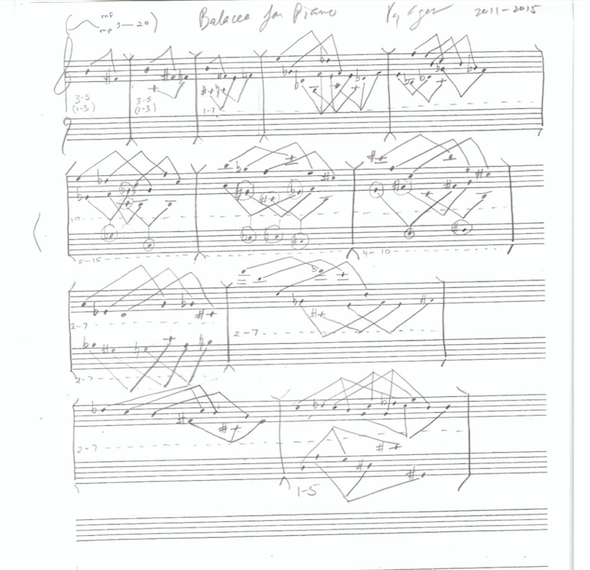 mf
mp 3-20)
Balacea for Piano
2011-2015
3-5
(1-3)
3-5
(1-3)
1-3
5-15
4-10
2-7
2-7
2-7
2-7
1-5